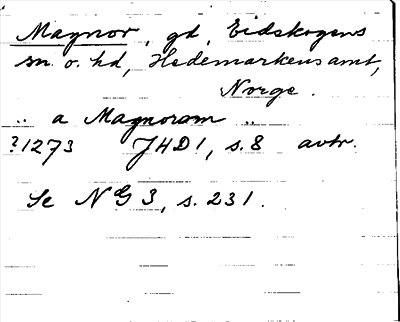 Magnor, gd, Eidskogens
sn. o. hd, Hedemarkens amt,
Norge.
.. a Magnoram ..
?1273 JHD1, s.8 avtr.
Se NG 3, s. 231.